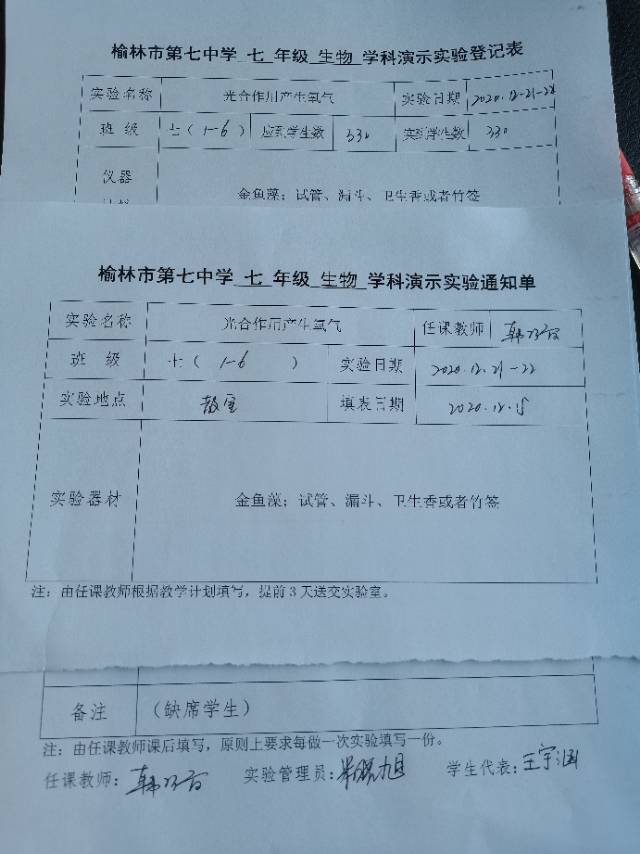 榆林市第七中学 七 年级 生物 学科演示实验登记表
实验名称 光合作用产生氧气 实验日期 2020.12-21-22
班 级 七(1-6) 应到学生数 330 实到学生数 330
仪器
金鱼藻；试管、漏斗、卫生香或者竹签
榆林市第七中学 七 年级 生物 学科演示实验通知单
实验名称 光合作用产生氧气 任课教师
班 级 七( 1-6 ) 实验日期 2020.12.21-22
实验地点 教室 填表日期 2020.12.15
实验器材 金鱼藻；试管、漏斗、卫生香或者竹签
注：由任课教师根据教学计划填写，提前3天送交实验室。
备注 （缺席学生）
注：由任课教师课后填写，原则上要求每做一次实验填写一份。
任课教师： 实验管理员： 学生代表：王宇涵